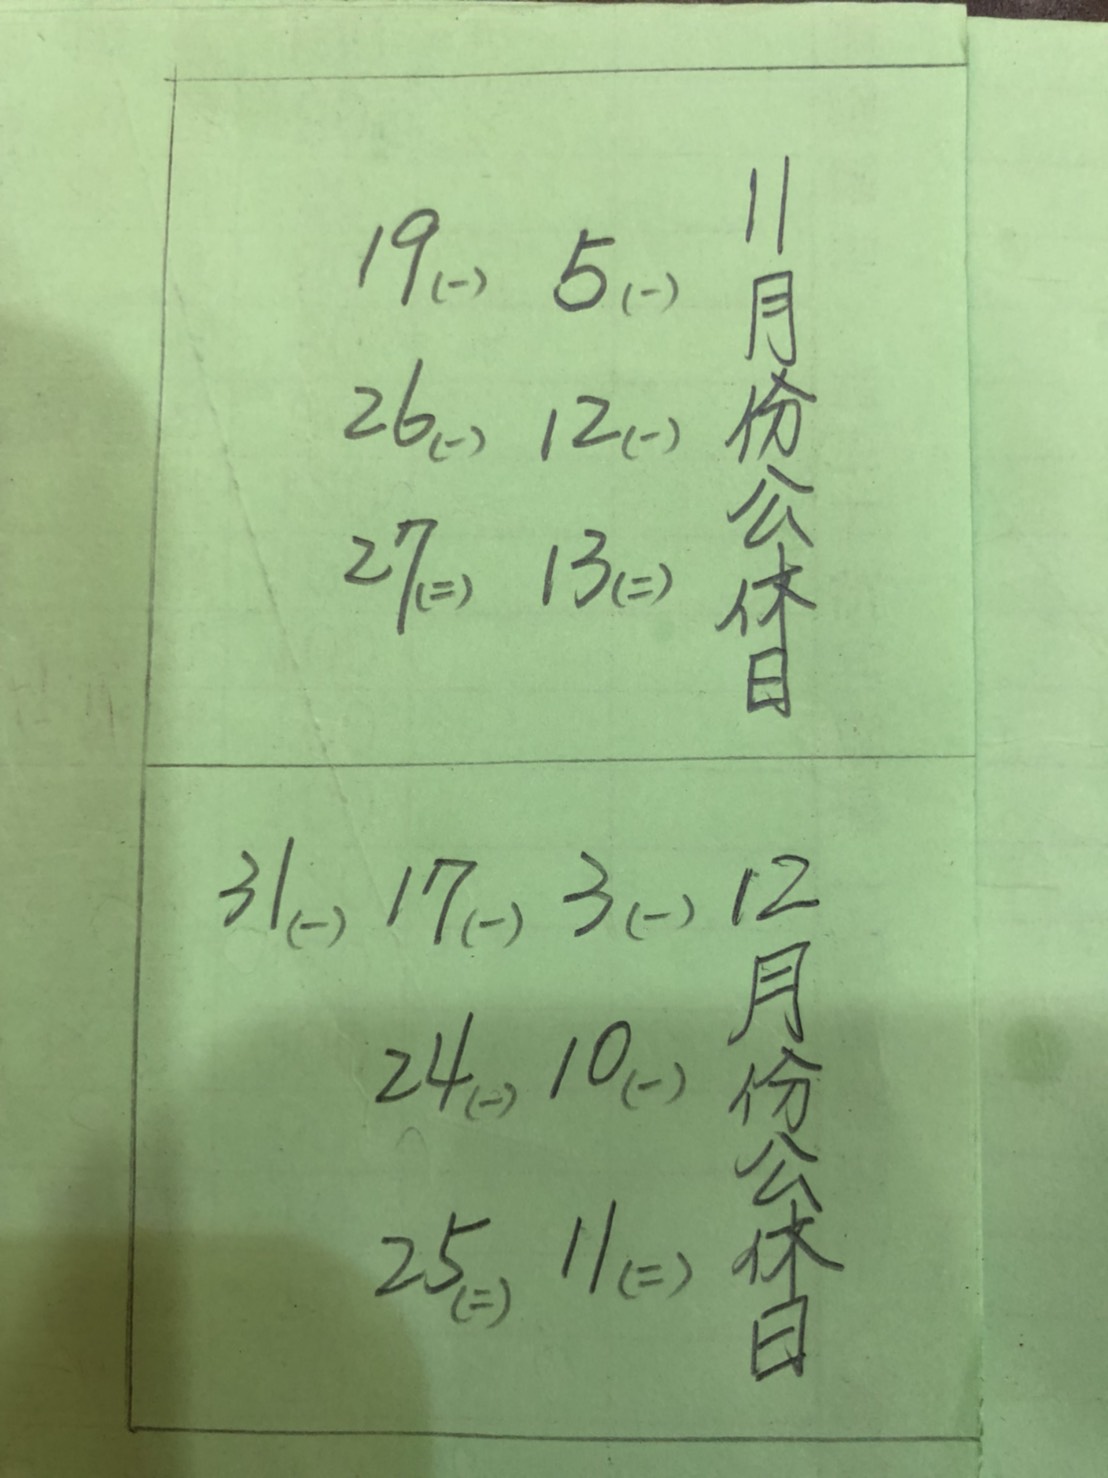 11月份公休日
5(一)
12(一)
13(二)
19(一)
26(一)
27(二)
12月份公休日
3(一)
10(一)
11(二)
17(一)
24(一)
25(二)
31(一)